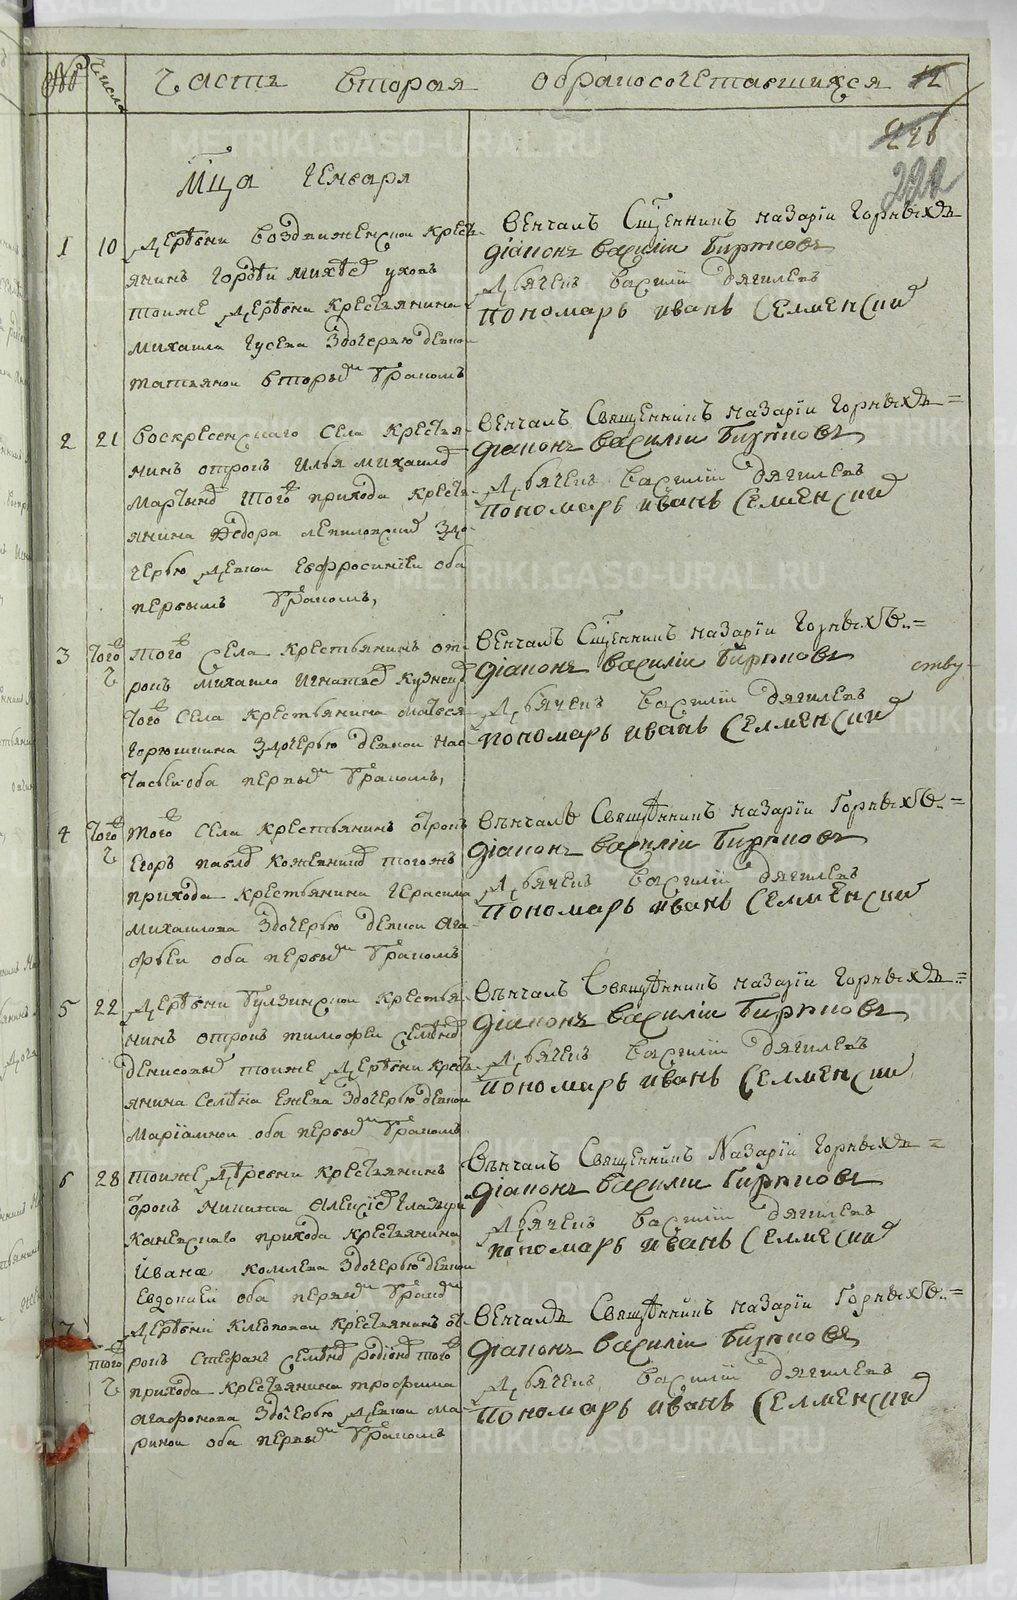 № Число Часть вторая обракосочетавшихся 12
226
222
Мца Генваря
1 10 Деревни Воздвиженской крестьянинъ Гордѣй
тоиже Деревни крестьянина
Михаила Гусева Здочерью девкой
татьяной вторымъ бракомъ
Венчалъ Сщенникъ назарїи Горныхъ
діаконъ василіи Бирюковъ
Дьячекъ василіи Дягилевъ
пономарь иванъ Селменскии
2 21 Воскресенскаго Села крестья-
нинъ отрокъ Илья михаиловъ
того прихода кресть-
янина Федора Здо-
черью девкой Евфросинїей оба
первымъ бракомъ,
Венчалъ Священникъ назарїи Горныхъ=
діаконъ василіи Бирюковъ
Дьячекъ василіи Дягилевъ
пономарь иванъ Селменскии
3 Того Ч того Села крестьянинъ от-
рокъ михаило Игнатьевъ Кузнецовъ
того Села крестьянина матвея
Горюшкина Здочерью девкой нас-
тасьей оба первымъ бракомъ,
Венчалъ Сщенникъ назарїи Горныхъ..=
діаконъ василіи Бирюковъ
ству-
Дьячекъ василіи Дягилевъ
пономарь иванъ Селменскии
4 Того Ч того Села крестьянинъ отрокъ
Егоръ павловъ Кожевниковъ тогожъ
прихода крестьянина Герасима
михаилова Здочерью девкой Ага-
фьей оба первымъ бракомъ
Вѣнчалъ Священникъ назарїи Горныхъ..=
діаконъ василіи Бирюковъ
Дьячекъ василіи Дягилевъ
пономарь иванъ Селменскии
5 22 Деревни Булзинской крестья-
нинъ отрокъ тимофеи Семеновъ
Денисовыхъ тоиже Деревни кресть-
янина Семена Ежева Здочерью девкой
Марїамной оба первымъ бракомъ
Вѣнчалъ Священникъ назарїи Горныхъ..=
діаконъ василіи Бирюковъ
Дьячекъ василіи Дягилевъ
пономарь иванъ Селменскии
6 28 тоиже Деревни крестьянинъ
отрокъ никита Алексїевъ
прихода крестьянина
Ивана Здочерью девкой
Евдокией оба первымъ бракомъ
Вѣнчалъ Священникъ Назарїи Горныхъ =
діаконъ василіи Бирюковъ
Дьячекъ василіи Дягилевъ
пономарь иванъ Селменскии
7 того Ч Деревни крестьянинъ от-
рокъ Стефанъ Семеновъ того
прихода крестьянина трофима
Агафонова Здочерью девкой ма-
риной оба первымъ бракомъ
Венчалъ Священникъ назарїи Горныхъ..=
діаконъ василіи Бирюковъ
Дьячекъ василіи Дягилевъ
пономарь иванъ Селменскии
METRIKI.GASO-URAL.RU